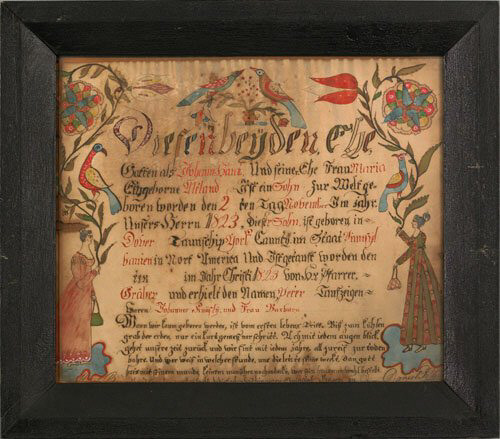 Diesen beyden Ehe
Gatten als Johannes Und seine Ehe Frau Maria
Ist ein Sohn zur Welt ge-
boren worden den 2 ten Tag Novemb. Im Jahr
Unsers Herrn 1823. Dieser Sohn ist geboren in
Dover Taunschip York Caunty im Staat Pannsyl
vanien in Nort America Und Ist getauft worden den
im Jahr Christi 1823 von Hr Pfarrer
Gräber und erhielt den Namen Peter Taufzeigen
Waren Johannes und Frau Barbara
Wann wir kaum geboren werden, ist vom ersten lebens Tritt Biß zum kühlen
grab der erden, nur ein kurz gemeßner schritt. Ach mit jedem augen blick
gehet unsre zeit zurück und wir sind mit jedem jahre, all zu reif zur todten
bahre. Und wer weiß in welcher stunde, uns die letzte stime wecke, dan gott
hats mit seinem munde, keinem menschen noch entdeckt, wer sein haus nun wohl bestellt